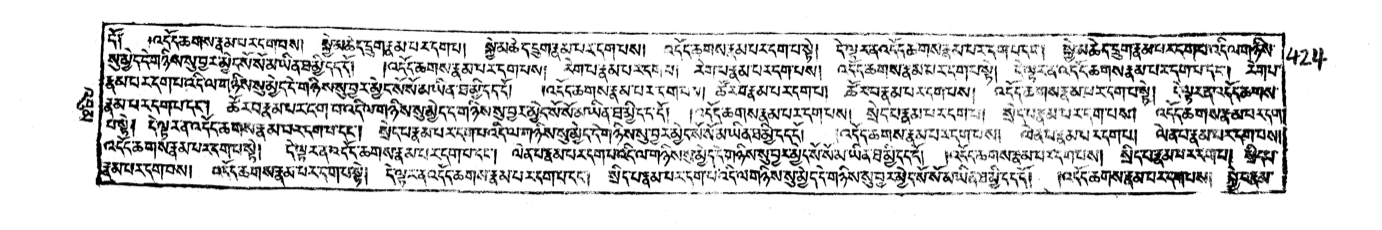 དོ། །འདོད་ཆགས་རྣམ་པར་དག་པས། སྐྱེ་མཆེད་དྲུག་རྣམ་པར་དག་པ། སྐྱེ་མཆེད་དྲུག་རྣམ་པར་དག་པས། འདོད་ཆགས་རྣམ་པར་དག་པ་སྟེ། དེ་ལྟར་ན་འདོད་ཆགས་རྣམ་པར་དག་པ་དང་། སྐྱེ་མཆེད་དྲུག་རྣམ་པར་དག་པ་འདི་ལ་གཉིས་ 424
སུ་མྱེད་དེ་གཉིས་སུ་བྱར་མྱེད་སོ་སོ་མ་ཡིན་ཐ་མྱི་དད་དོ། །འདོད་ཆགས་རྣམ་པར་དག་པས། རེག་པ་རྣམ་པར་དག་པ། རེག་པ་རྣམ་པར་དག་པས། འདོད་ཆགས་རྣམ་པར་དག་པ་སྟེ། དེ་ལྟར་ན་འདོད་ཆགས་རྣམ་པར་དག་པ་དང་། རེག་པ་
རྣམ་པར་དག་པ་འདི་ལ་གཉིས་སུ་མྱེད་དེ་གཉིས་སུ་བྱར་མྱེད་སོ་སོ་མ་ཡིན་ཐ་མྱི་དད་དོ། །འདོད་ཆགས་རྣམ་པར་དག་པས། ཚོར་བ་རྣམ་པར་དག་པ། ཚོར་བ་རྣམ་པར་དག་པས། འདོད་ཆགས་རྣམ་པར་དག་པ་སྟེ། དེ་ལྟར་ན་འདོད་ཆགས་
རྣམ་པར་དག་པ་དང་། ཚོར་བ་རྣམ་པར་དག་པ་འདི་ལ་གཉིས་སུ་མྱེད་དེ་གཉིས་སུ་བྱར་མྱེད་སོ་སོ་མ་ཡིན་ཐ་མྱི་དད་དོ། །འདོད་ཆགས་རྣམ་པར་དག་པས། སྲེད་པ་རྣམ་པར་དག་པ། སྲེད་པ་རྣམ་པར་དག་པས། འདོད་ཆགས་རྣམ་པར་དག་
པ་སྟེ། དེ་ལྟར་ན་འདོད་ཆགས་རྣམ་པར་དག་པ་དང་། སྲེད་པ་རྣམ་པར་དག་པ་འདི་ལ་གཉིས་སུ་མྱེད་དེ་གཉིས་སུ་བྱར་མྱེད་སོ་སོ་མ་ཡིན་ཐ་མྱི་དད་དོ། །འདོད་ཆགས་རྣམ་པར་དག་པས། ལེན་པ་རྣམ་པར་དག་པ། ལེན་པ་རྣམ་པར་དག་པས།
འདོད་ཆགས་རྣམ་པར་དག་པ་སྟེ། དེ་ལྟར་ན་འདོད་ཆགས་རྣམ་པར་དག་པ་དང་། ལེན་པ་རྣམ་པར་དག་པ་འདི་ལ་གཉིས་སུ་མྱེད་དེ་གཉིས་སུ་བྱར་མྱེད་སོ་སོ་མ་ཡིན་ཐ་མྱི་དད་དོ། །འདོད་ཆགས་རྣམ་པར་དག་པས། སྲིད་པ་རྣམ་པར་དག་པ། སྲིད་པ་
རྣམ་པར་དག་པས། འདོད་ཆགས་རྣམ་པར་དག་པ་སྟེ། དེ་ལྟར་ན་འདོད་ཆགས་རྣམ་པར་དག་པ་དང་། སྲིད་པ་རྣམ་པར་དག་པ་འདི་ལ་གཉིས་སུ་མྱེད་དེ་གཉིས་སུ་བྱར་མྱེད་སོ་སོ་མ་ཡིན་ཐ་མྱི་དད་དོ། །འདོད་ཆགས་རྣམ་པར་དག་པས། སྐྱེ་བ་རྣམ་